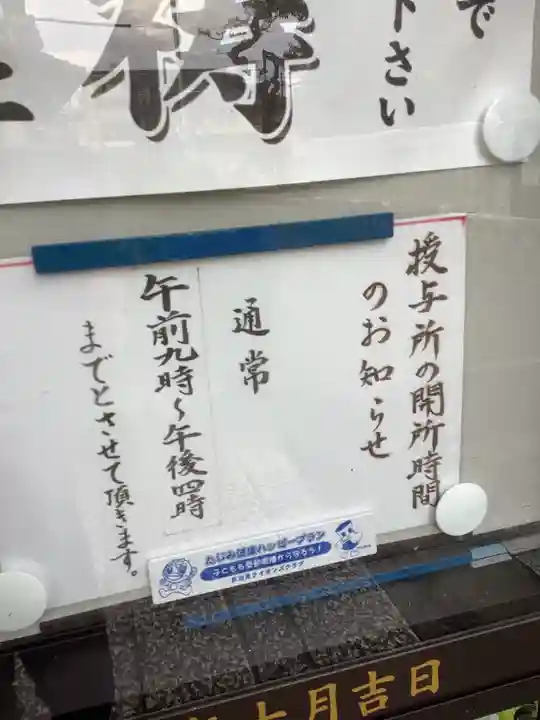 で
下さい
授与所の開所時間
のお知らせ
通常
午前九時〜午後四時
までとさせて頂きます。
たじみ健康ハッピープラン
子どもを受動喫煙から守ろう！
七月吉日